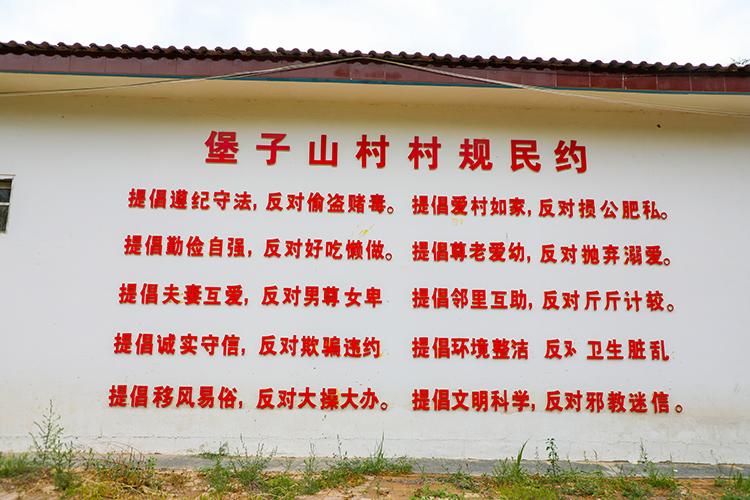 堡子山村村规民约
提倡遵纪守法，反对偷盗赌毒。提倡爱村如家，反对损公肥私。
提倡勤俭自强，反对好吃懒做。提倡尊老爱幼，反对抛弃溺爱。
提倡夫妻互爱，反对男尊女卑 提倡邻里互助，反对斤斤计较。
提倡诚实守信，反对欺骗违约 提倡环境整洁 反对 卫生脏乱
提倡移风易俗，反对大操大办。提倡文明科学，反对邪教迷信。